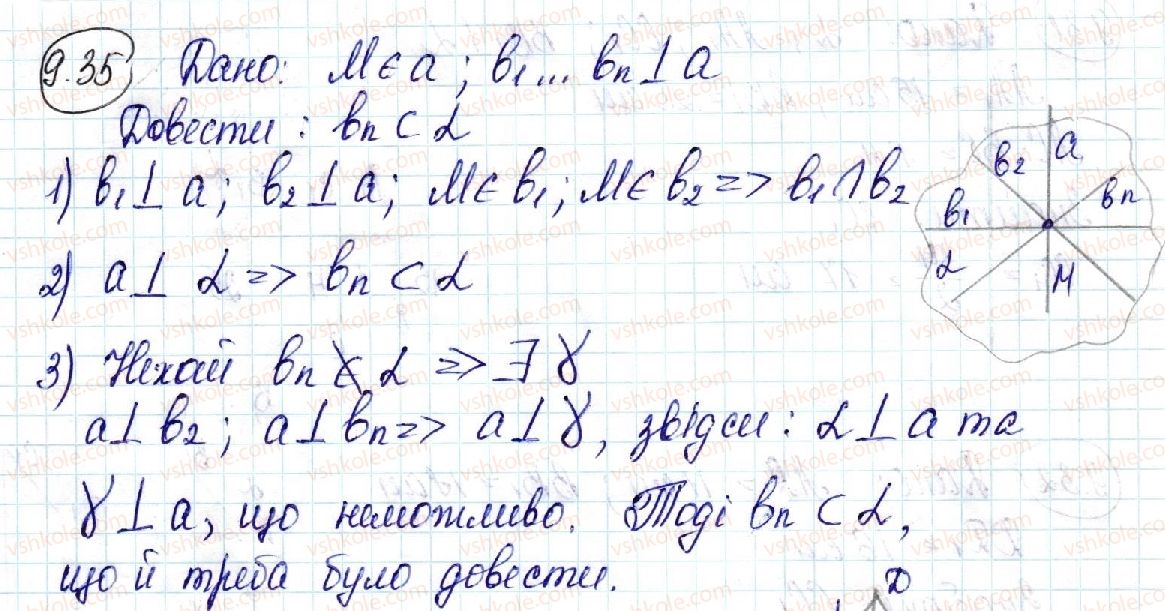 9.35 Дано: M ∈ a; b₁... bₙ ⊥ a
Довести: bₙ ⊂ α
1) b₁ ⊥ a; b₂ ⊥ a; M ∈ b₁; M ∈ b₂ => b₁ ∩ b₂
2) a ⊥ α => bₙ ⊂ α
3) Нехай bₙ ⊄ α => ∃ γ
a ⊥ b₂; a ⊥ bₙ => a ⊥ γ, звідси: α ⊥ a та
γ ⊥ a, що неможливо. Тоді bₙ ⊂ α,
що й треба було довести.
b₂ a
b₁ bₙ
α M
D
vshkole.com